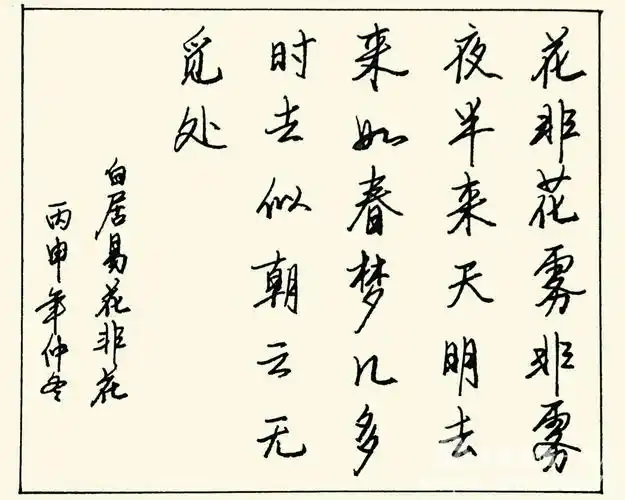 花非花雾非雾
夜半来天明去
来如春梦几多
时去似朝云无
觅处
白居易花非花
丙申年仲冬